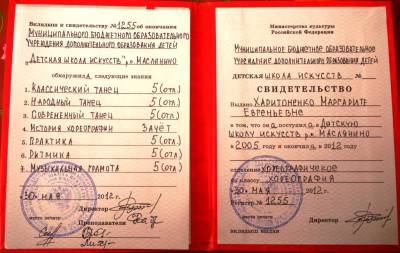 Вкладыш к свидетельству № 1255 об окончании
Муниципального бюджетного образовательного
учреждения дополнительного образования детей
"Детская школа искусств" р.п. Маслянино
обнаружила следующие знания
1. Классический танец 5 (отл.)
2. Народный танец 5 (отл.)
3. Современный танец 5 (отл.)
4. История хореографии Зачёт
5. Практика 5 (отл.)
6. Ритмика 5 (отл.)
7. Музыкальная грамота 5 (отл.)
"30" мая 2012 г.
Директор
Преподаватели
место печати
Министерство культуры
Российской Федерации
Муниципальное бюджетное образовательное
учреждение дополнительного образования детей
ДЕТСКАЯ школа искусств №
СВИДЕТЕЛЬСТВО
Выдано Харитоненко Маргарите
Евгеньевне
в том, что он а поступил а в Детскую
школу искусств р.п. Маслянино
в 2005 году и окончил а в 2012 году
отделение хореографическое
по классу хореография
"30" мая 2012 г.
Регистр. № 1255
место печати Директор
выдано